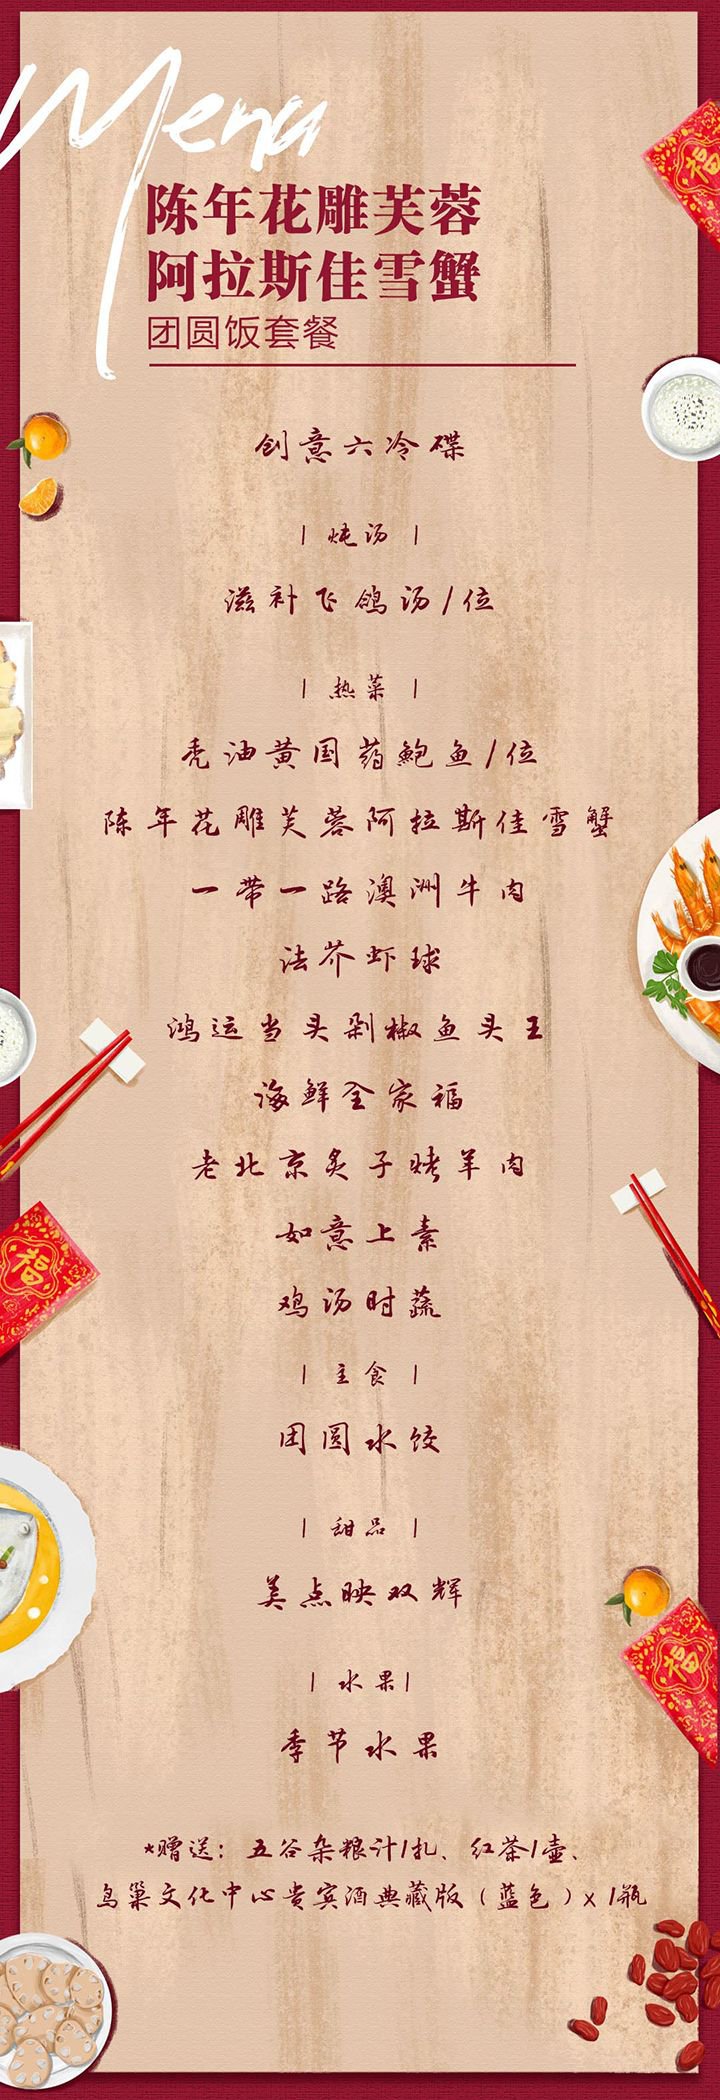 Menu
陈年花雕芙蓉
阿拉斯佳雪蟹
团圆饭套餐
创意六冷碟
| 炖汤 |
滋补飞鸽汤/位
| 热菜 |
秃油黄国药鲍鱼/位
陈年花雕芙蓉阿拉斯佳雪蟹
一带一路澳洲牛肉
法芥虾球
鸿运当头剁椒鱼头王
海鲜全家福
老北京炙子烤羊肉
如意上素
鸡汤时蔬
| 主食 |
团圆水饺
| 甜品 |
美点映双辉
| 水果 |
季节水果
*赠送：五谷杂粮汁1扎、红茶1壶、
鸟巢文化中心贵宾酒典藏版（蓝色）x 1瓶
福
福
福